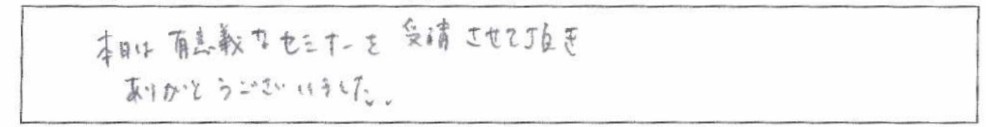 本日は有意義なセミナーを受講させて頂き
ありがとうございました。